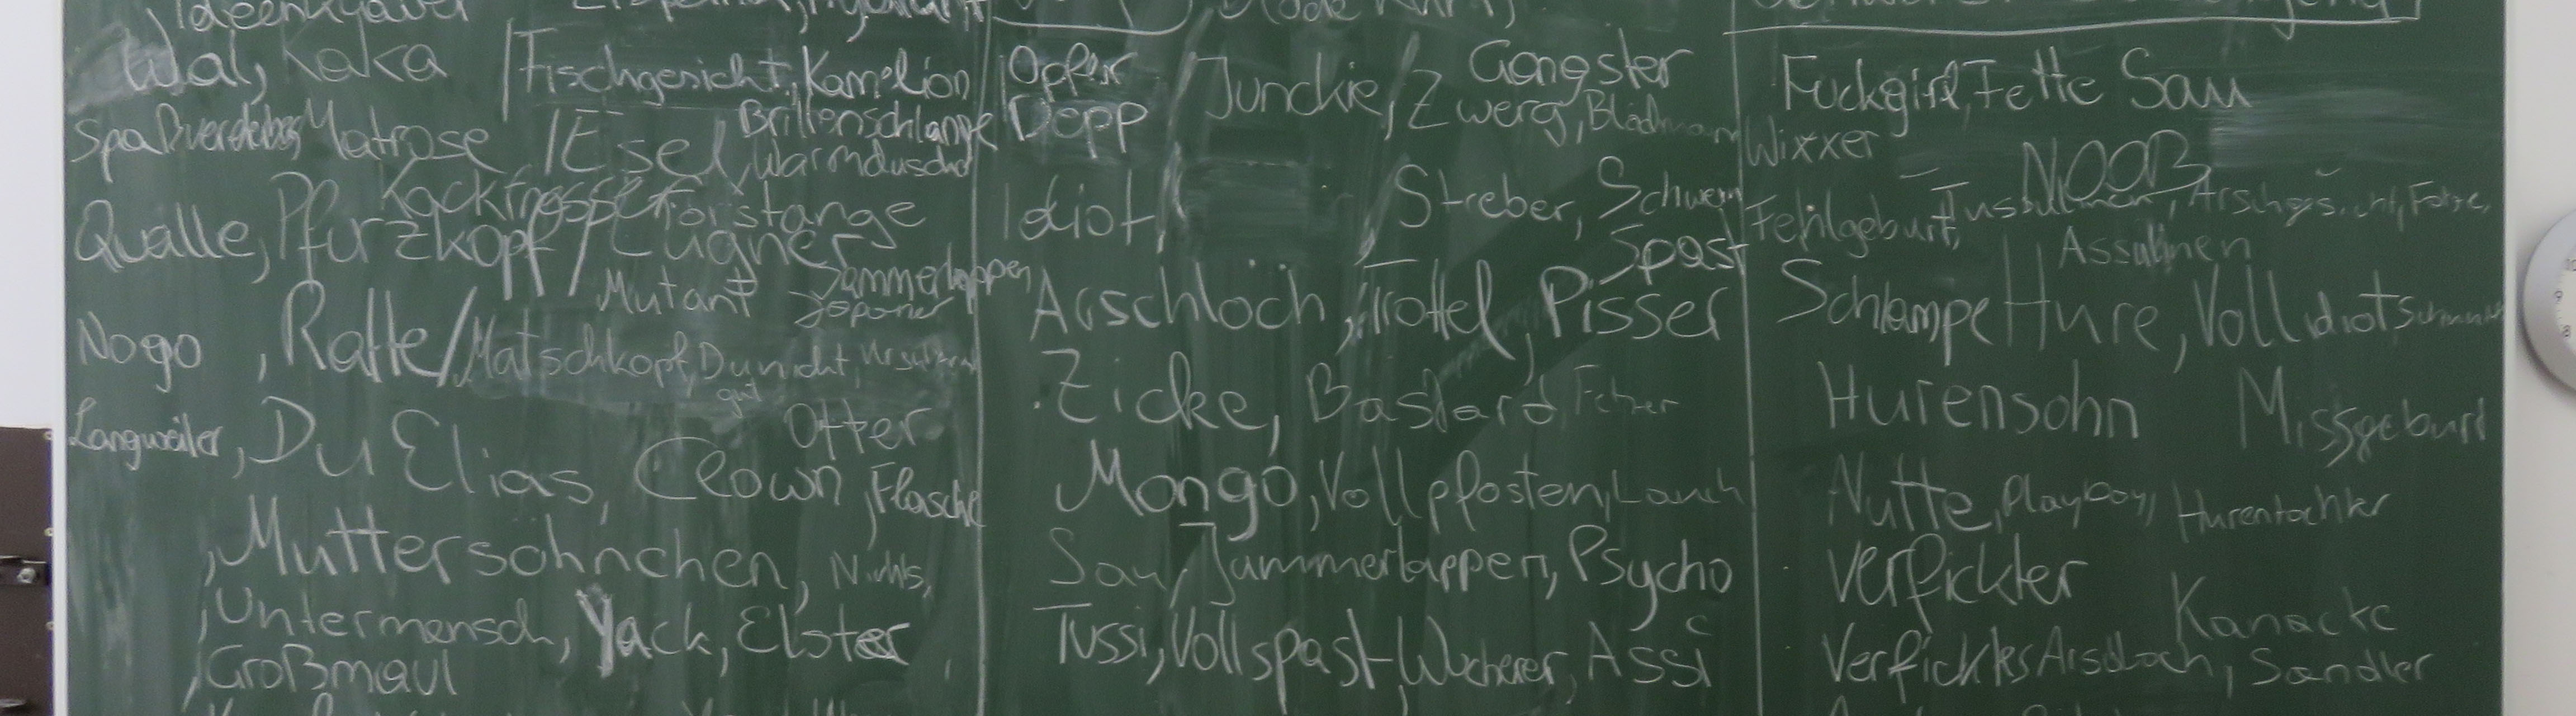 Wal, Kaka
Fischgesicht, Kamelion
Spaßverderber, Matrose
Esel, Brillenschlange
Warmduscher
Kackfresser
Qualle, Pfurzkopf / Lügner
Mutant
Japaner
Nogo, Ratte / Matschkopf, Du nicht
gut
Otter
Langweiler, Du Elias, Clown, Flasche
, Muttersöhnchen, Nichts,
, Untermensch, Yack, Elster
, Großmaul
Opfer
Junckie, Zwerg, Blödmann
Gangster
Depp
Idiot
Streber, Schwein
Spast
Arschloch, Trottel, Pisser
Zicke, Bastard
Mongo, Vollpfosten, Lauch
Sau, Jammerlappen, Psycho
Tussi, Vollspast, Wucherer, Assi
Fuckgirl, Fette Sau
Wixxer
NOOB
Fehlgeburt, Arschgesicht, Fotze,
Schlampe Hure, Vollidiot
Hurensohn Missgeburt
Nutte, Playboy, Hurentochter
verfickter
Kanacke
Verficktes Arschloch, Sandler